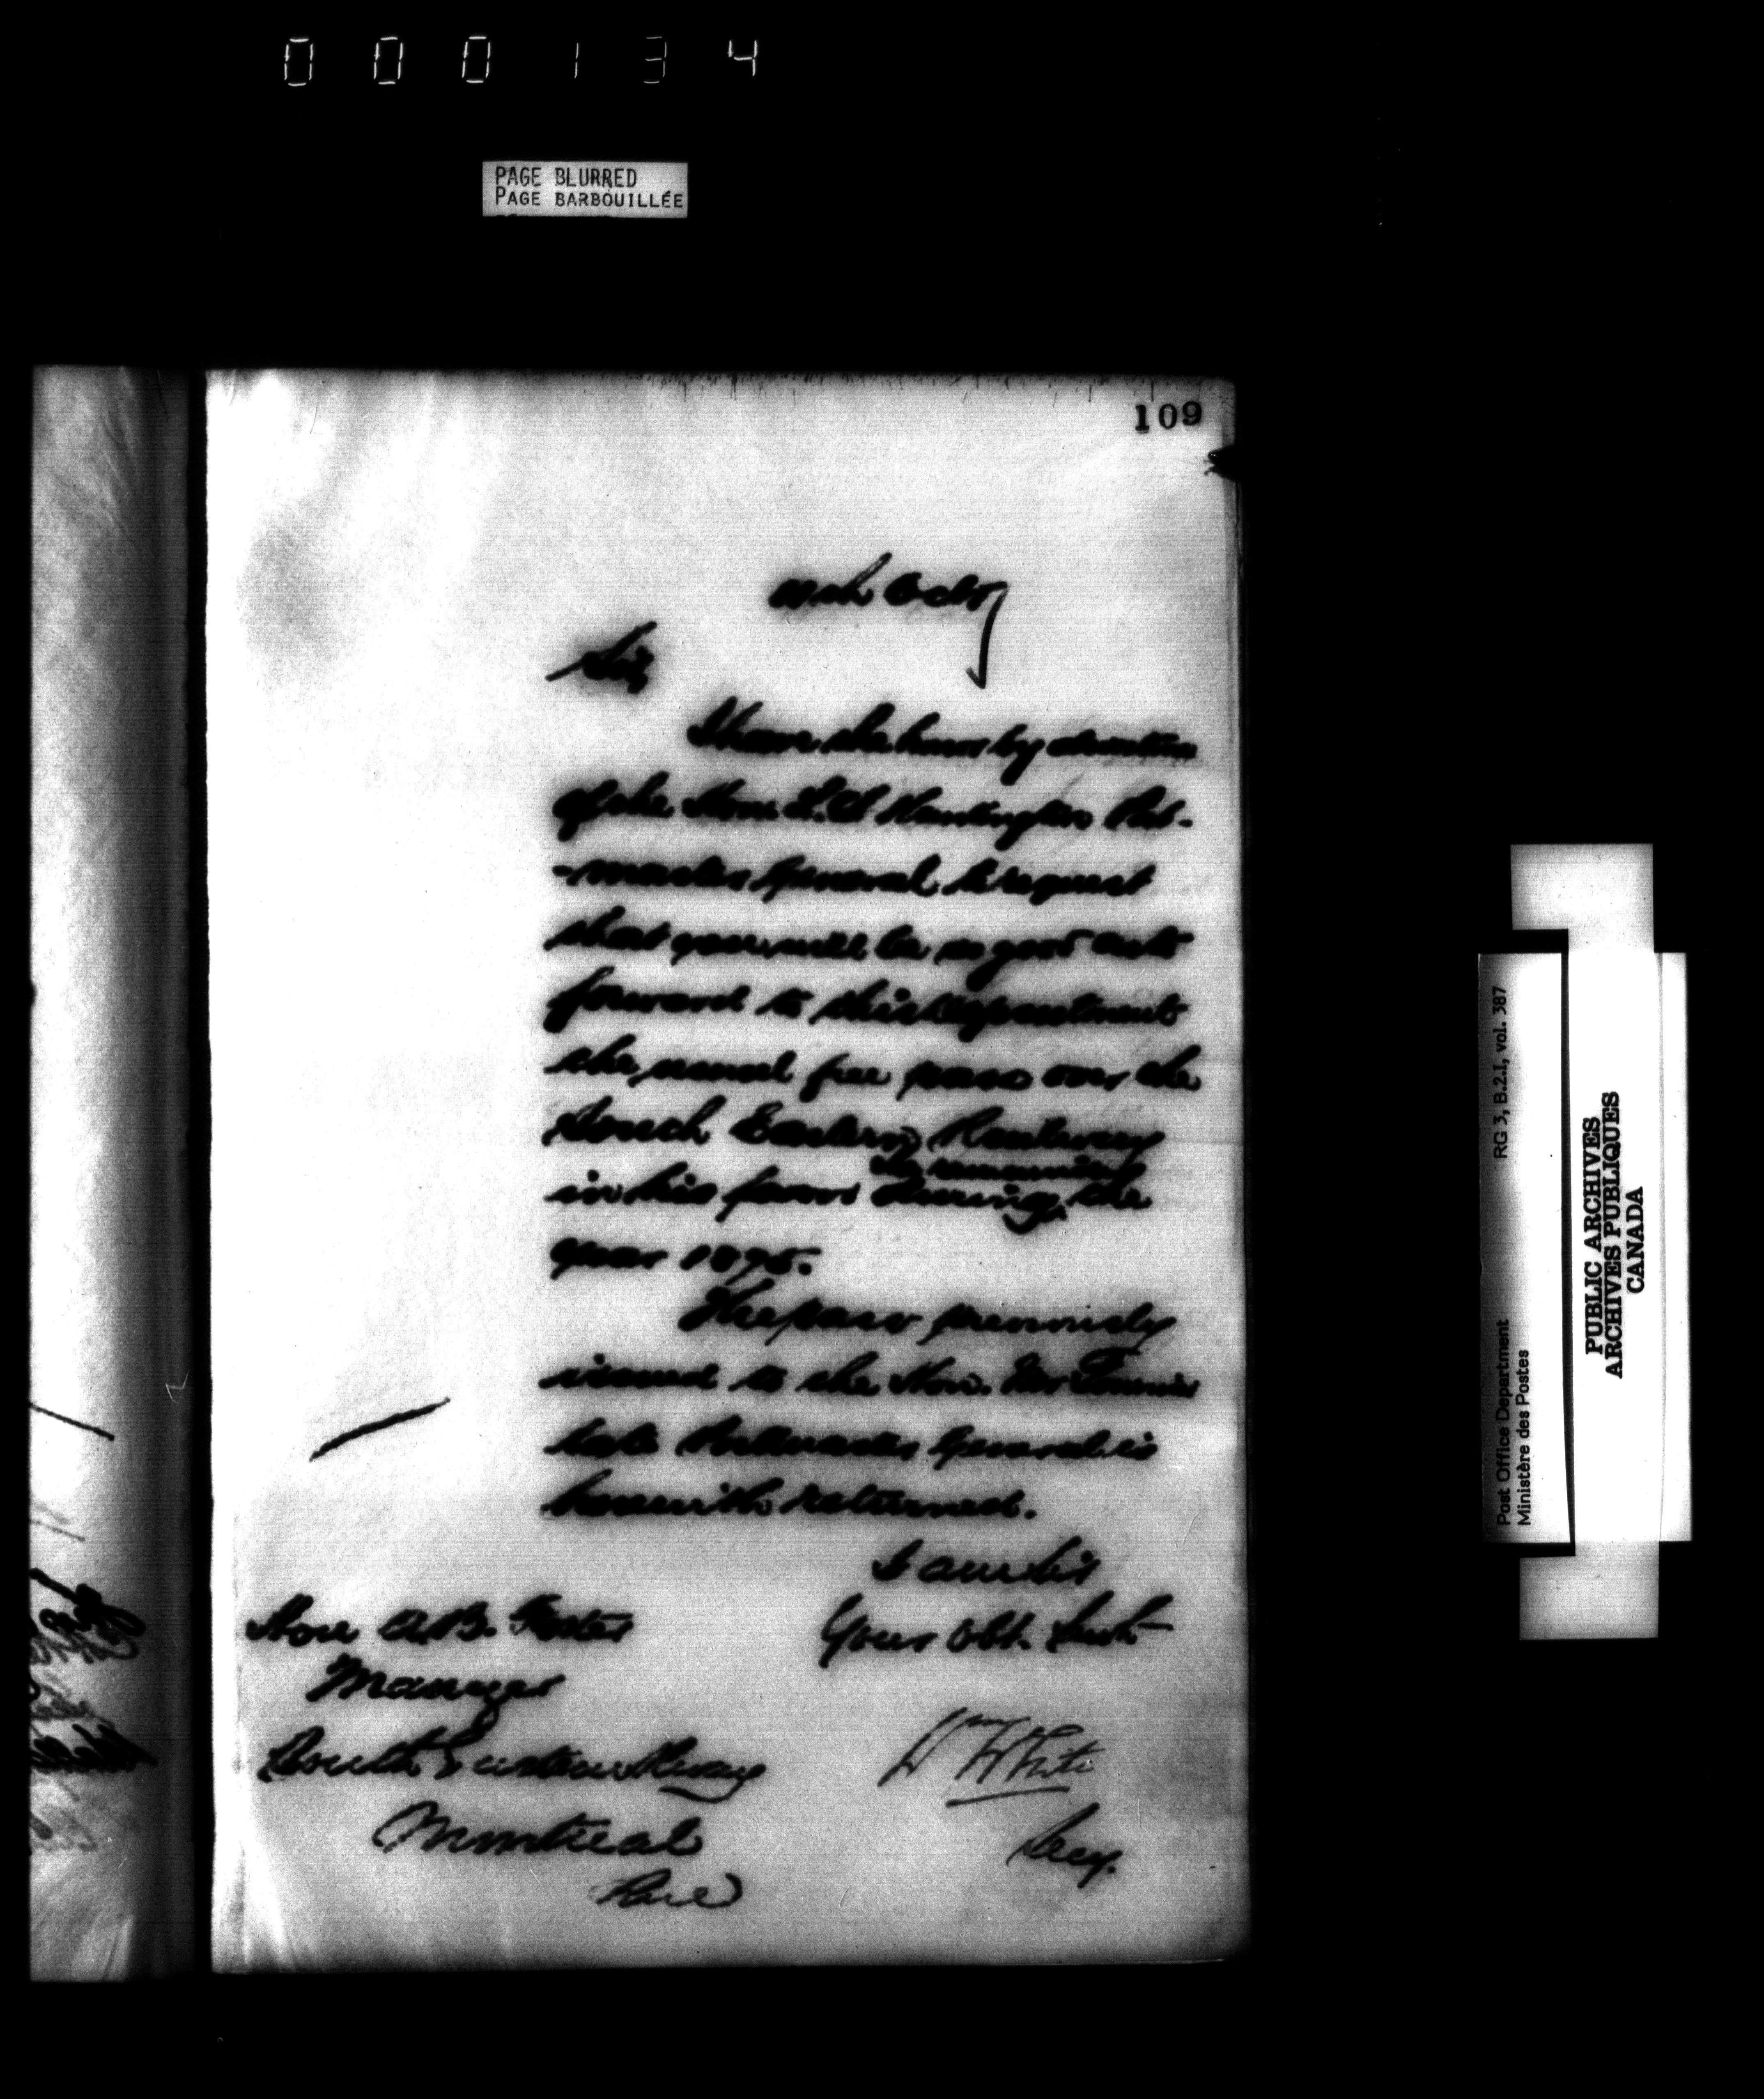 000134
PAGE BLURRED
PAGE BARBOUILLÉE
109
Octr
Sir,
I have the honor by direction
of the Hon. L. S. Huntington Post-
-master General to request
that you will be so good as to
forward to this Department
the usual free pass over the
South Eastern Railway
in his favor during the
the remaining
year 1875.
The pass previously
issued to the Hon. Mr Fournier
late Postmaster General is
herewith returned.
I am Sir
Your Obt. Servt
Hon A.B. Foster
Manager
South Eastern Rway
Montreal
Wm White
Secy.
RG 3, B.2.I, vol. 387
Post Office Department
Ministère des Postes
PUBLIC ARCHIVES
ARCHIVES PUBLIQUES
CANADA